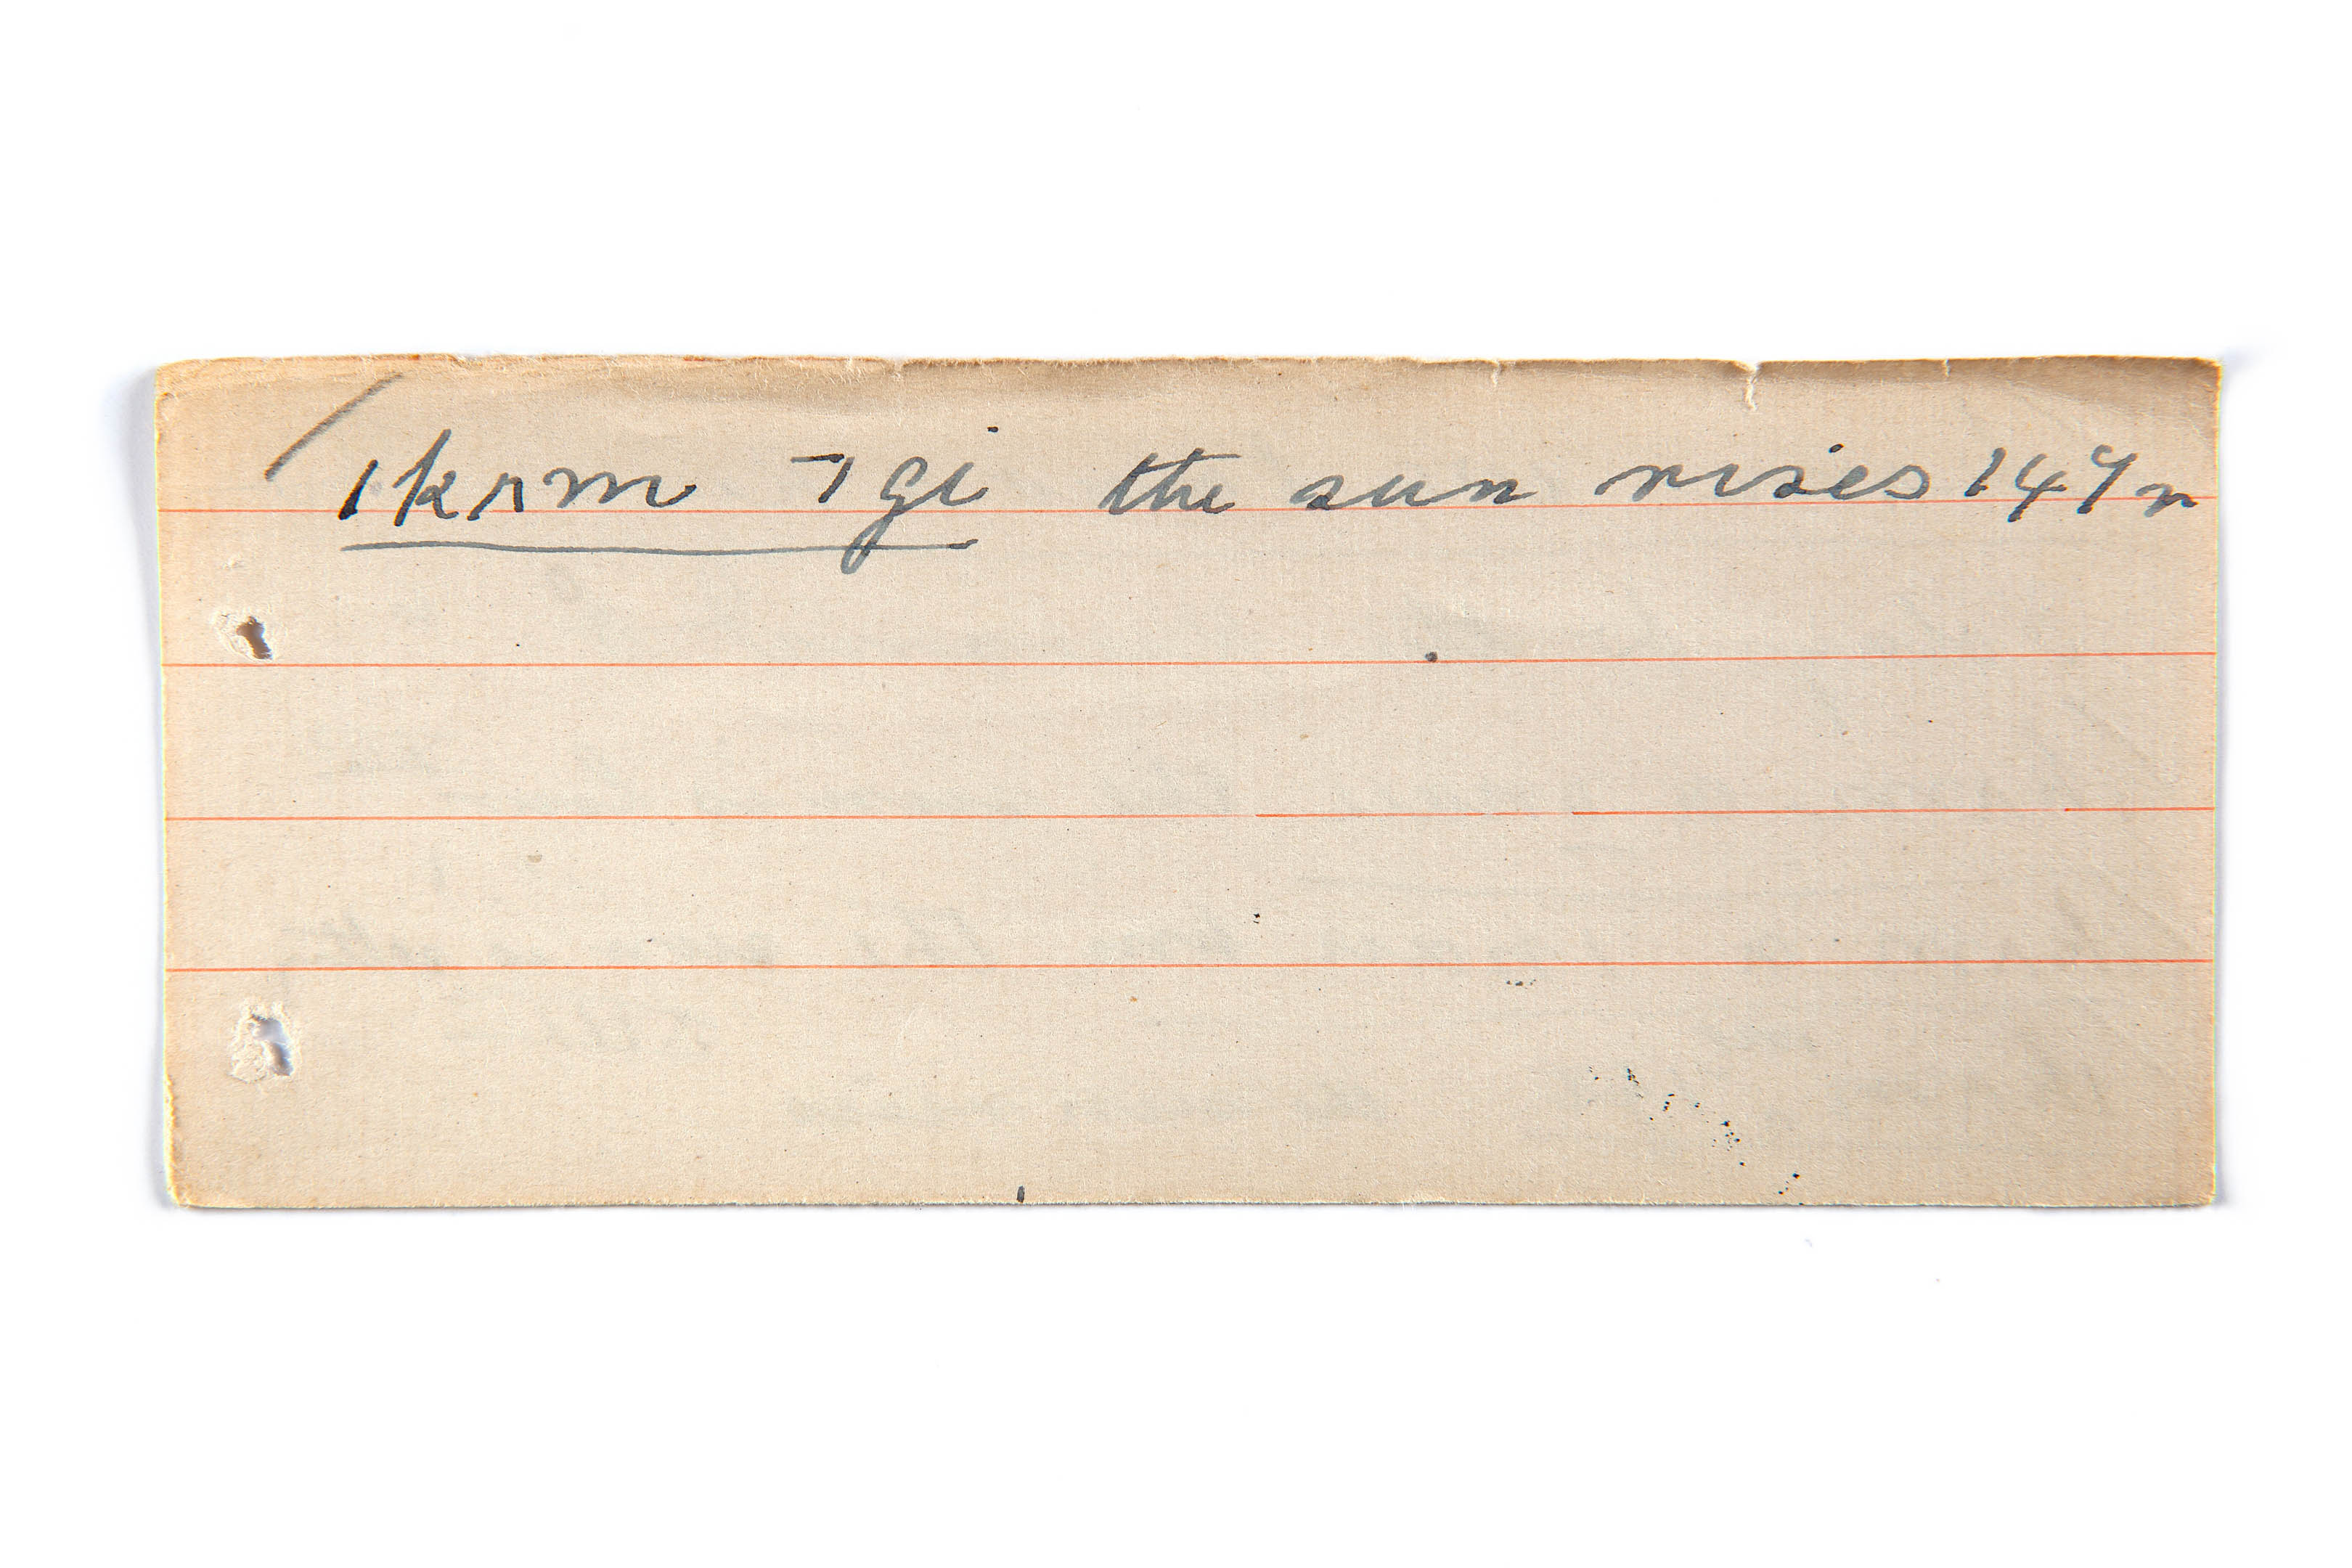 /kʌm ¯/gi the sun rises 147